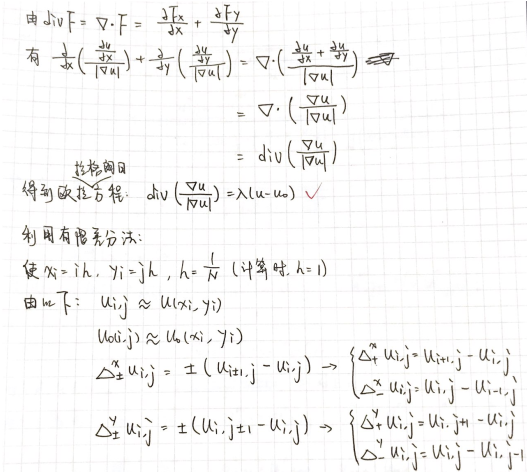 由 divF = ∇·F = ∂Fx/∂x + ∂Fy/∂y
有 ∂/∂x((∂u/∂x)/|∇u|) + ∂/∂y((∂u/∂y)/|∇u|) = ∇·((∂u/∂x + ∂u/∂y)/|∇u|)
= ∇·(∇u/|∇u|)
= div(∇u/|∇u|)
拉格朗日
得到欧拉方程: div(∇u/|∇u|) = λ(u-u₀) ✓
利用有限差分法:
使 xi = ih, yi = jh, h = 1/N (计算时, h=1)
由以下: ui,j ≈ u(xi, yi)
u₀(i,j) ≈ u₀(xi, yi)
Δ±ˣ ui,j = ±(ui±1,j - ui,j) → { Δ₊ˣ ui,j = ui+1,j - ui,j
Δ₋ˣ ui,j = ui,j - ui-1,j
Δ±ʸ ui,j = ±(ui,j±1 - ui,j) → { Δ₊ʸ ui,j = ui,j+1 - ui,j
Δ₋ʸ ui,j = ui,j - ui,j-1